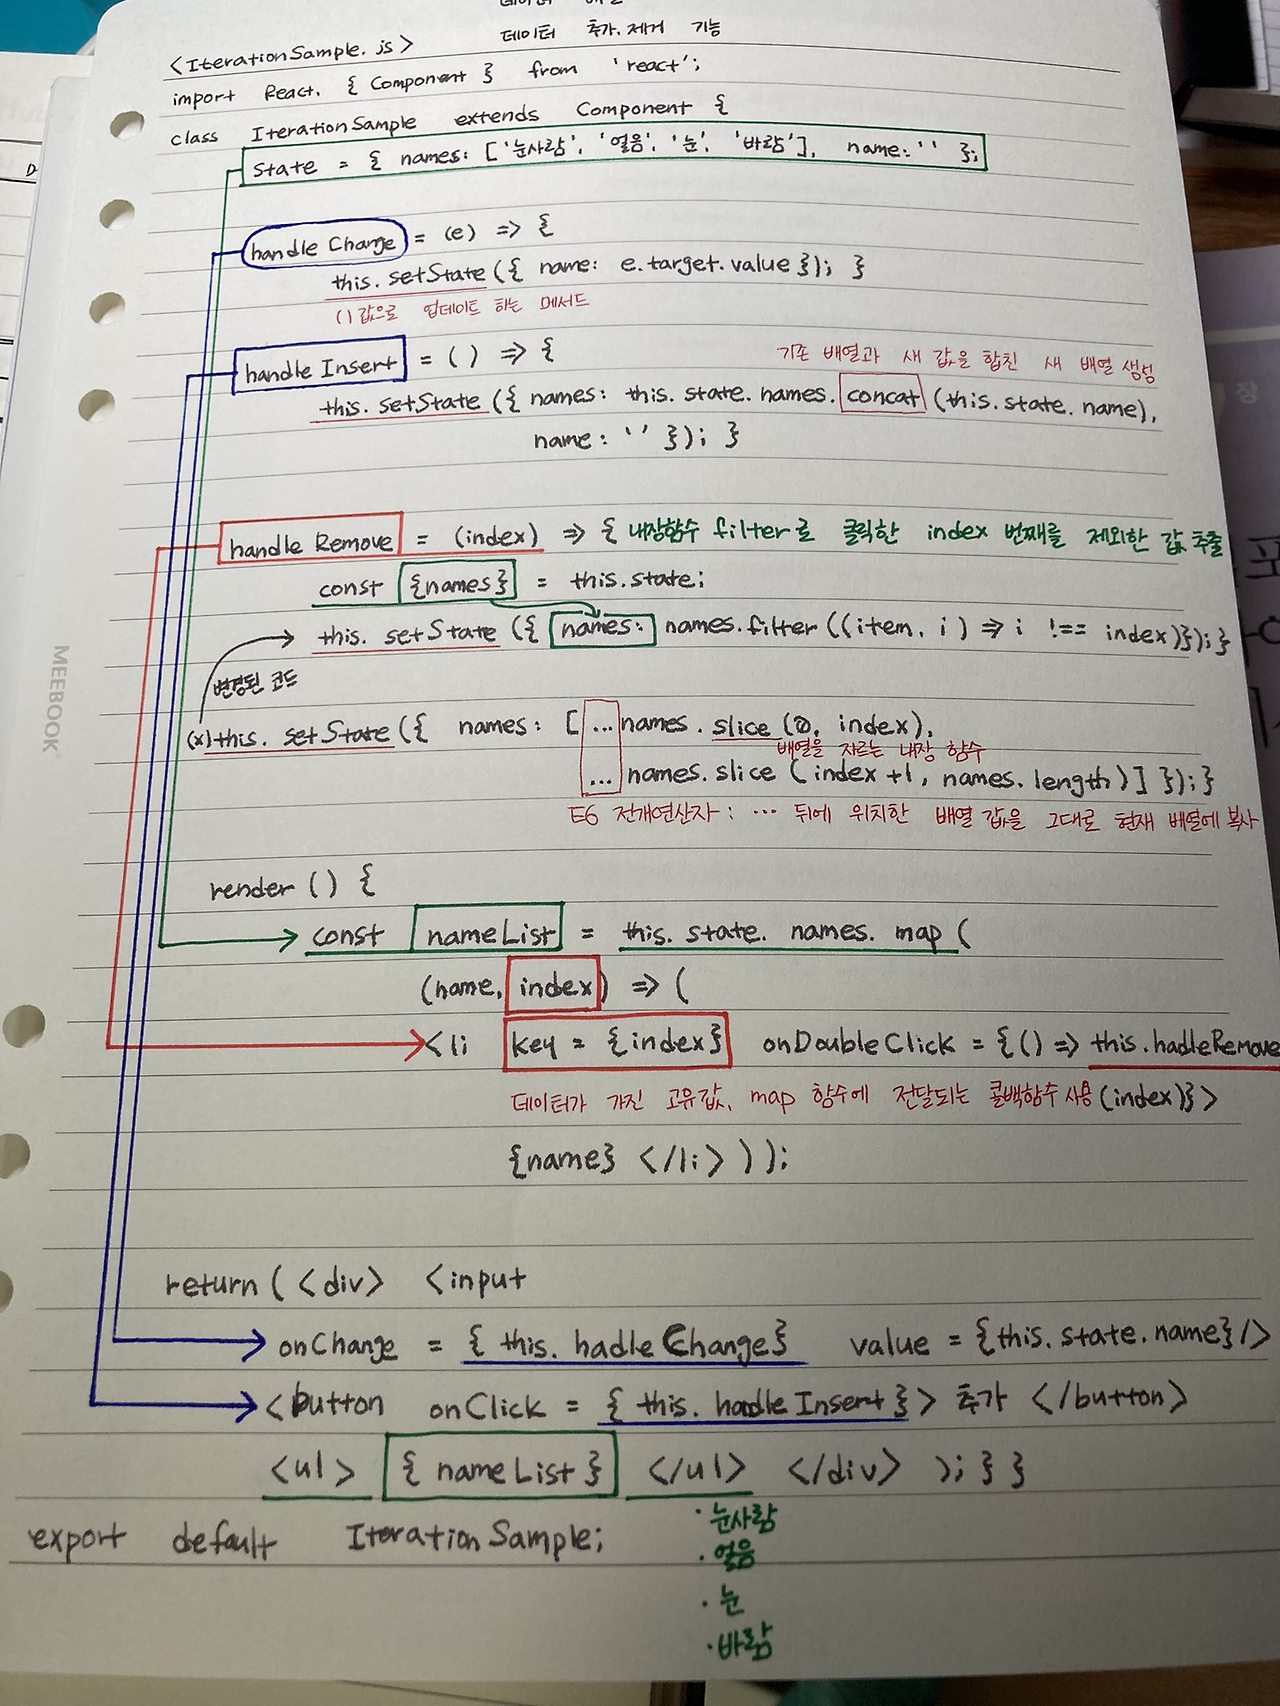 데이터 추가, 제거 기능
<IterationSample.js>
import React, { Component } from 'react';
class IterationSample extends Component {
state = { names: ['눈사람', '얼음', '눈', '바람'], name: '' };
handle Change = (e) => {
this.setState({ name: e.target.value }); }
( ) 값으로 업데이트 하는 메서드
handle Insert = ( ) => {
기존 배열과 새 값을 합친 새 배열 생성
this.setState({ names: this.state.names.concat(this.state.name),
name: '' }); }
handle Remove = (index) => { 내장함수 filter로 클릭한 index 번째를 제외한 값 추출
const {names} = this.state;
this.setState({ names: names.filter((item, i) => i !== index)}); }
변경된 코드
(x)this.setState({ names: [ ...names.slice(0, index),
배열을 자르는 내장 함수
...names.slice(index+1, names.length)] }); }
E6 전개연산자 : ... 뒤에 위치한 배열 값을 그대로 현재 배열에 복사
render () {
const nameList = this.state.names.map(
(name, index) => (
<li key = {index} onDoubleClick = {() => this.hadleRemove
데이터가 가진 고유값, map 함수에 전달되는 콜백함수 사용 (index)}>
{name} </li> ) );
return ( <div> <input
onChange = { this. hadle Change} value = {this.state.name} />
<button onClick = { this. hadle Insert }> 추가 </button>
<ul> { nameList } </ul> </div> ); } }
export default IterationSample;
· 눈사람
· 얼음
· 눈
· 바람
MEEBOOK